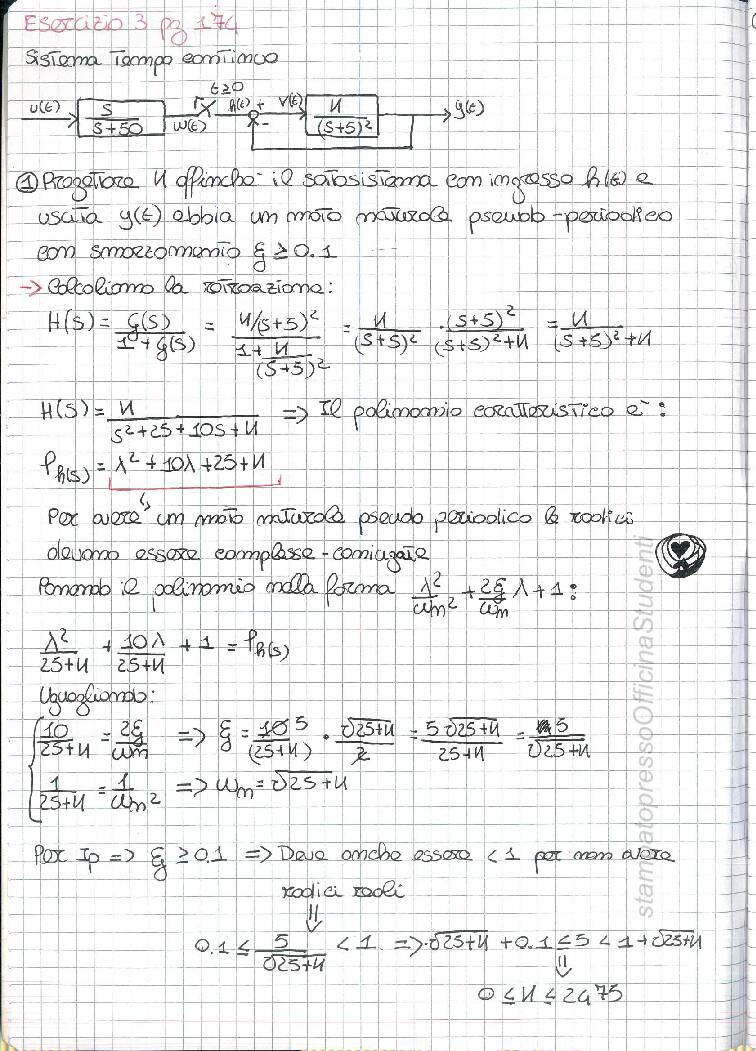 Esercizio 3 pg 174
Sistema Tempo continuo
t≥0
u(t) s/(s+50) w(t) h(t) + - v(t) K/(s+5)² y(t)
① Progettare K affinché il sottosistema con ingresso h(t) e
uscita y(t) abbia un moto naturale pseudo-periodico
con smorzamento ξ ≥ 0.1
→ Calcoliamo la retroazione:
H(s) = G(s)/(1+G(s)) = (K/(s+5)²)/(1+K/(s+5)²) = K/(s+5)² · (s+5)²/((s+5)²+K) = K/((s+5)²+K)
H(s) = K/(s²+25+10s+K) => Il polinomio caratteristico è:
P_h(s) = λ²+10λ+25+K
Per avere un moto naturale pseudo periodico le radici
devono essere complesse-coniugate
Ponendo il polinomio nella forma λ²/ωn² + 2ξ/ωn λ + 1:
λ²/(25+K) + 10λ/(25+K) + 1 = P_h(s)
Uguagliando:
10/(25+K) = 2ξ/ωn => ξ = 10 5/(25+K) · √25+K/2 = 5√25+K/(25+K) = 5/√25+K
1/(25+K) = 1/ωn² => ωn = √25+K
Per Ip => ξ ≥ 0.1 => Deve anche essere < 1 per non avere
radici reali
⇓
0.1 ≤ 5/√25+K < 1 => √25+K + 0.1 ≤ 5 < 1 + √25+K
⇓
0 ≤ K ≤ 2475
stampatopressoOfficinaStudenti